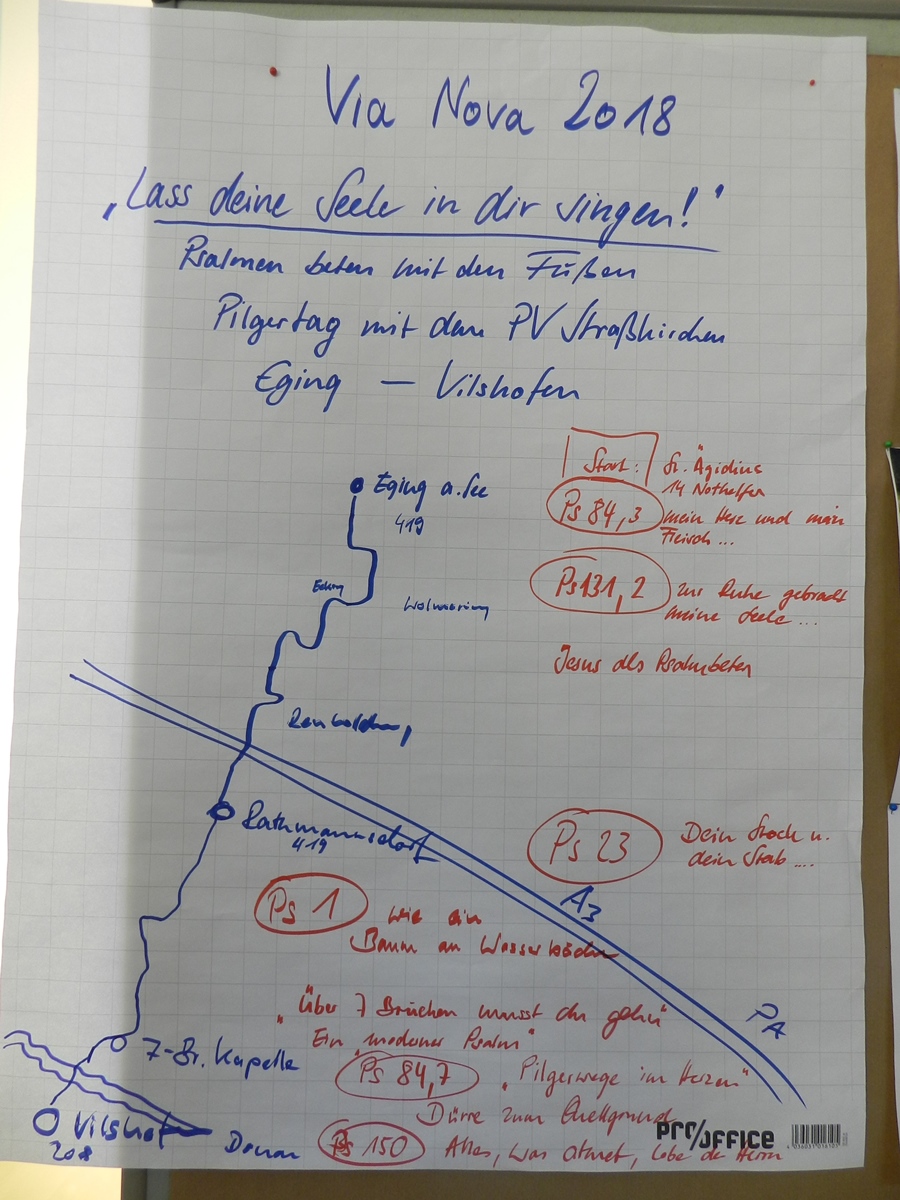 Via Nova 2018
„Lass deine Seele in dir singen!"
Psalmen beten mit den Füßen
Pilgertag mit dem PV Straßkirchen
Eging — Vilshofen
Start:
St. Ägidius
14 Nothelfer
Eging a. See
419
Ps 84,3
mein Herz und mein
Fleisch ...
Ps 131,2
zur Ruhe gebracht
meine Seele ...
Wolmering
Jesus als Psalmbeter
Rathmannsdorf
419
Ps 23
Dein Stock u.
dein Stab ....
A3
Ps 1
wie ein
Baum an Wasserbächen
PA
„Über 7 Brücken musst du gehn"
Ein „moderner Psalm"
7-Br. Kapelle
Ps 84,7
„Pilgerwege im Herzen"
Dürre zum Quellgrund
Vilshofen
Donau
Ps 150
Alles, was atmet, lobe den Herrn
PRO/OFFICE